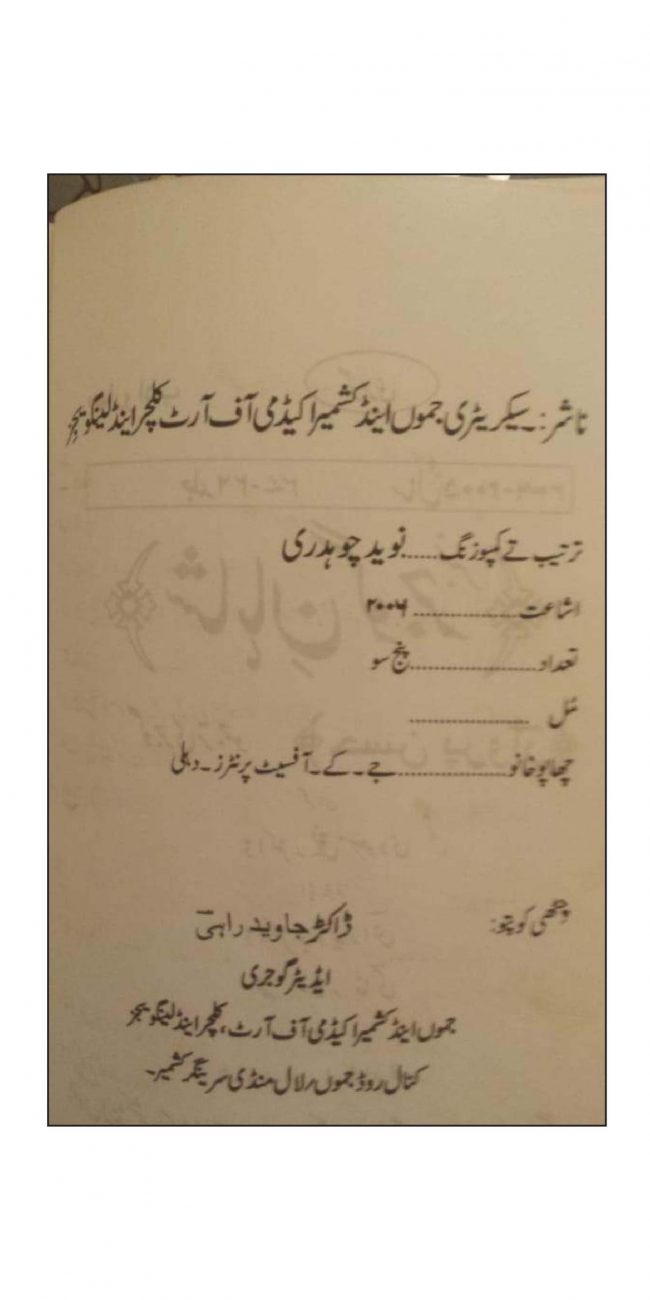 ناشر:۔ سیکریٹری جموں اینڈ کشمیر اکیڈمی آف آرٹ کلچر اینڈ لینگویجز
ترتیب تے کمپوزنگ.....نوید چوہدری
اشاعت................۲۰۰۶
تعداد...................پنج سو
مُل ..................
چھاپوخانو.................جے۔کے۔آفسیٹ پرنٹرز۔دہلی
چٹھی کو پتو:
ڈاکٹر جاوید راہی
ایڈیٹر گوجری
جموں اینڈ کشمیر اکیڈمی آف آرٹ، کلچر اینڈ لینگویجز
کنال روڈ جموں/لال منڈی سرینگر کشمیر۔